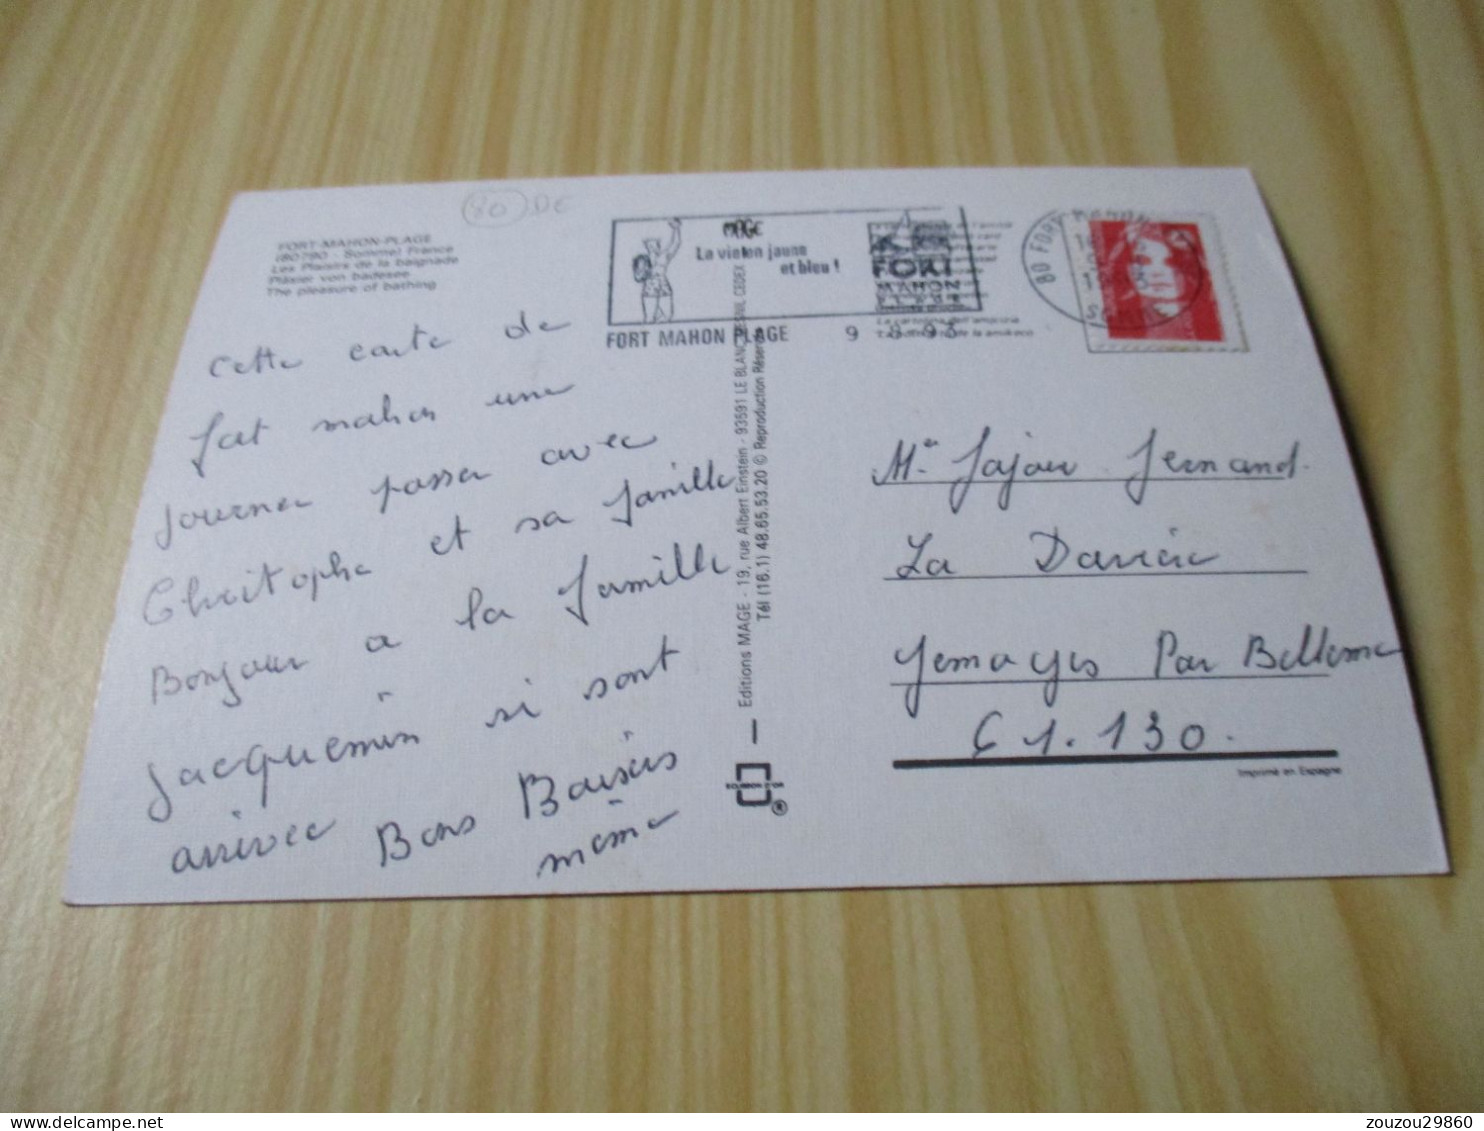 80 DE
FORT-MAHON-PLAGE
(80790 - Somme) France
Les Plaisirs de la baignade
Pläsier von badesee
The pleasure of bathing
cette carte de
fort mahon une
journer passer avec
Christophe et sa famille
Bonjour a la famille
jacquemin si sont
arrivee Bons Baisers
mémé
La vie en jaune
et bleu !
FORT
MAHON
PLAGE
FORT MAHON PLAGE 9 8 93
80 FORT MAHON
Editions MAGE - 19, rue Albert Einstein - 93591 LE BLANC MESNIL CEDEX
Tél (16.1) 48.65.53.20 © Reproduction Réservée
ECUSSON D'OR
®
Mr Jajou Fernand.
La Davière
Gemages Par Belleme
61.130.
Imprimé en Espagne
zouzou29860